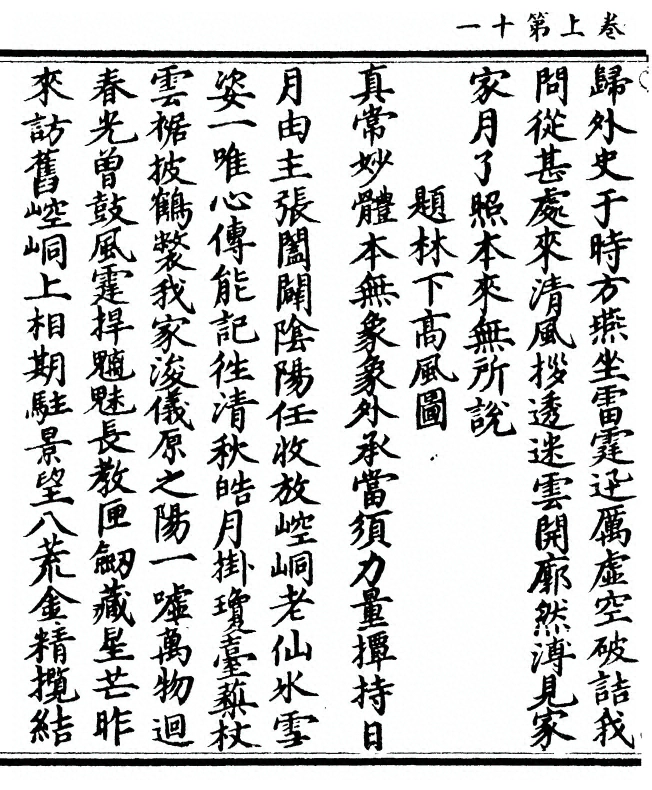 卷上第十一
歸外史于時方燕坐雷霆迅厲虛空破詰我
問從甚處來清風拶透迷雲開廓然溥見家
家月了照本來無所說
題林下高風圖
真常妙體本無象象外承當須力量撢持日
月由主張闔闢陰陽任收放崆峒老仙氷雪
姿一唯心傳能記徃清秋皓月掛瓊臺蘂杖
雲裾披鶴氅我家浚儀原之陽一噓萬物迴
春光曾鼓風霆捍魑魅長教匣劔藏星芒昨
來訪舊崆峒上相期駐景望八荒金精攬結